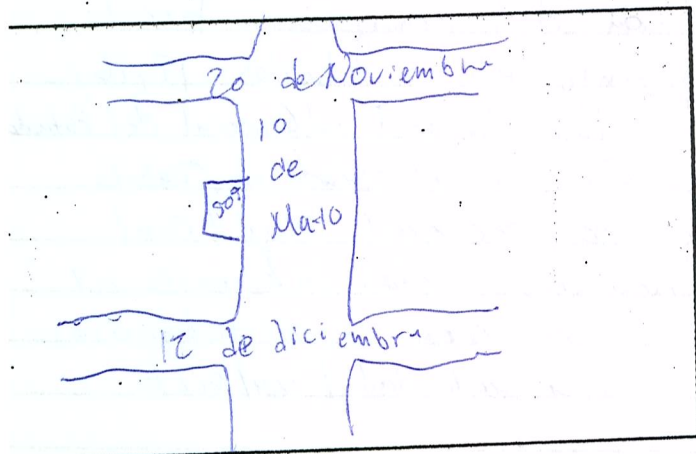 20 de Noviembre
10
de
Mayo
909
12 de diciembre